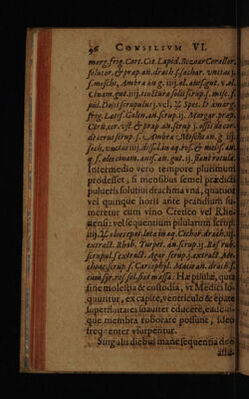 96 CONSILIVM VI.
marg. frig. Cort. Cit. Lapid. Bezoar Corallor.
solutor. & prap. an. drach. s. sachar.
s. moschi, Ambra an g. iiij. ol. anis. gut. v. al.
Cinam. gut. iiij. tinctura solis scrup. s. misc. f.
pul. Dosis scrupulus j. vel, ♃ Spec. D. amarg.
frig. Latif. Galen. an. scrup. ij. Margar. prap.
Corn. cer. vst. & prap. an. scrup. j. ossis de cor-
de cerui scrup. s. Ambra Moschi an. g. iij.
sach. vnctas iiij. dissol. in aq. ros. & melis. an.
q. s. olei cinam. anis. an. gut. ij. fiant rotula.
Intermedio vero tempore plurimum
prodesset, si mensibus semel prædicti
pulueris solutiui drachma vna, quatuor
vel quinque horis ante prandium su-
meretur cum vino Cretico vel Rhe-
nensi: vel sequentium pilularum scrup.
extract. Rhab. Turpet. an. scrup. ij.
scrupul. s. extract. Agar scrup. j. extract. Me-
choac. scrup. s. Caryophyl. Macis an. drach. s.
cum syr. ros. sol. f. massa. Hæ pilulæ, quia
sine molestia & custodia, vt Medici lo-
quuntur, ex capite, ventriculo & epate
superfluitates suauiter educere, eademque
membra roborare possunt, ideo
frequenter vsurpentur.
Singulis diebus mane sequentia deo
assu-